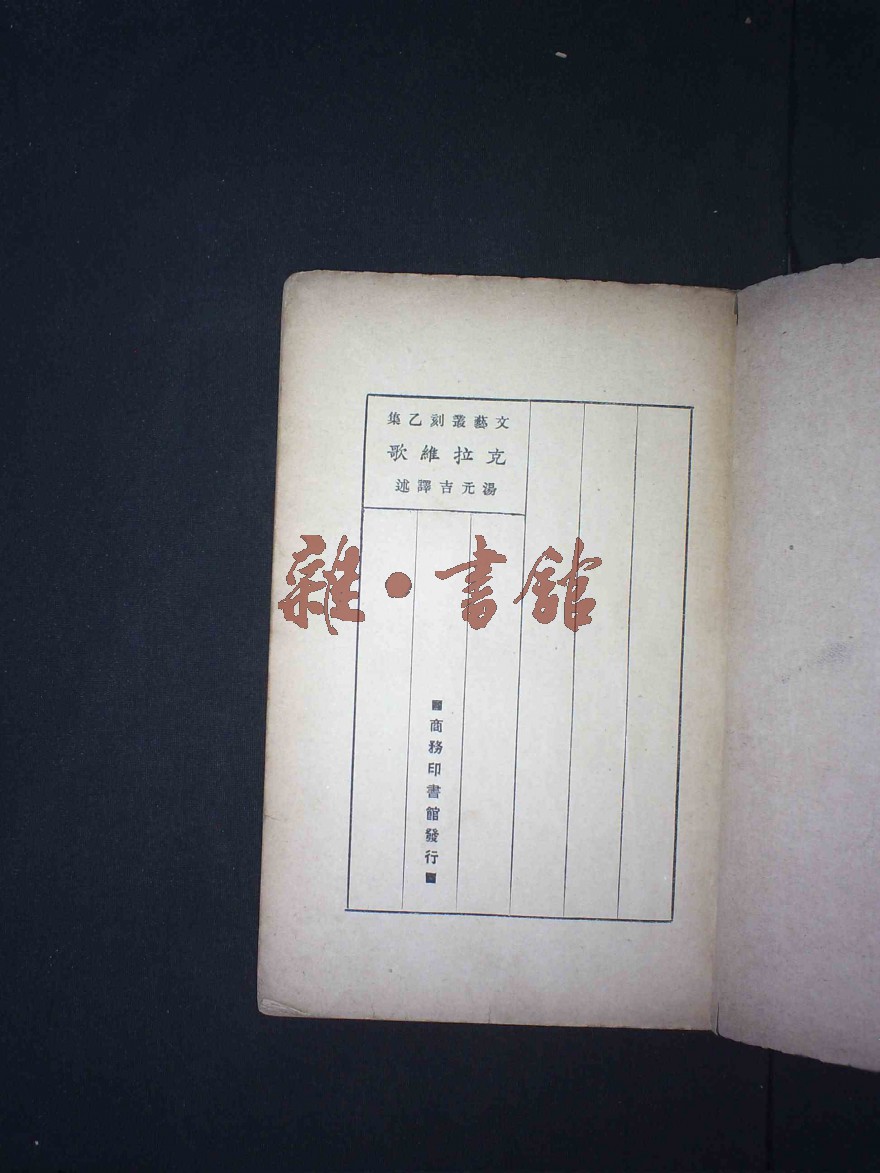 文藝叢刻乙集
克拉維歌
湯元吉譯述
雜·書館
商務印書館發行